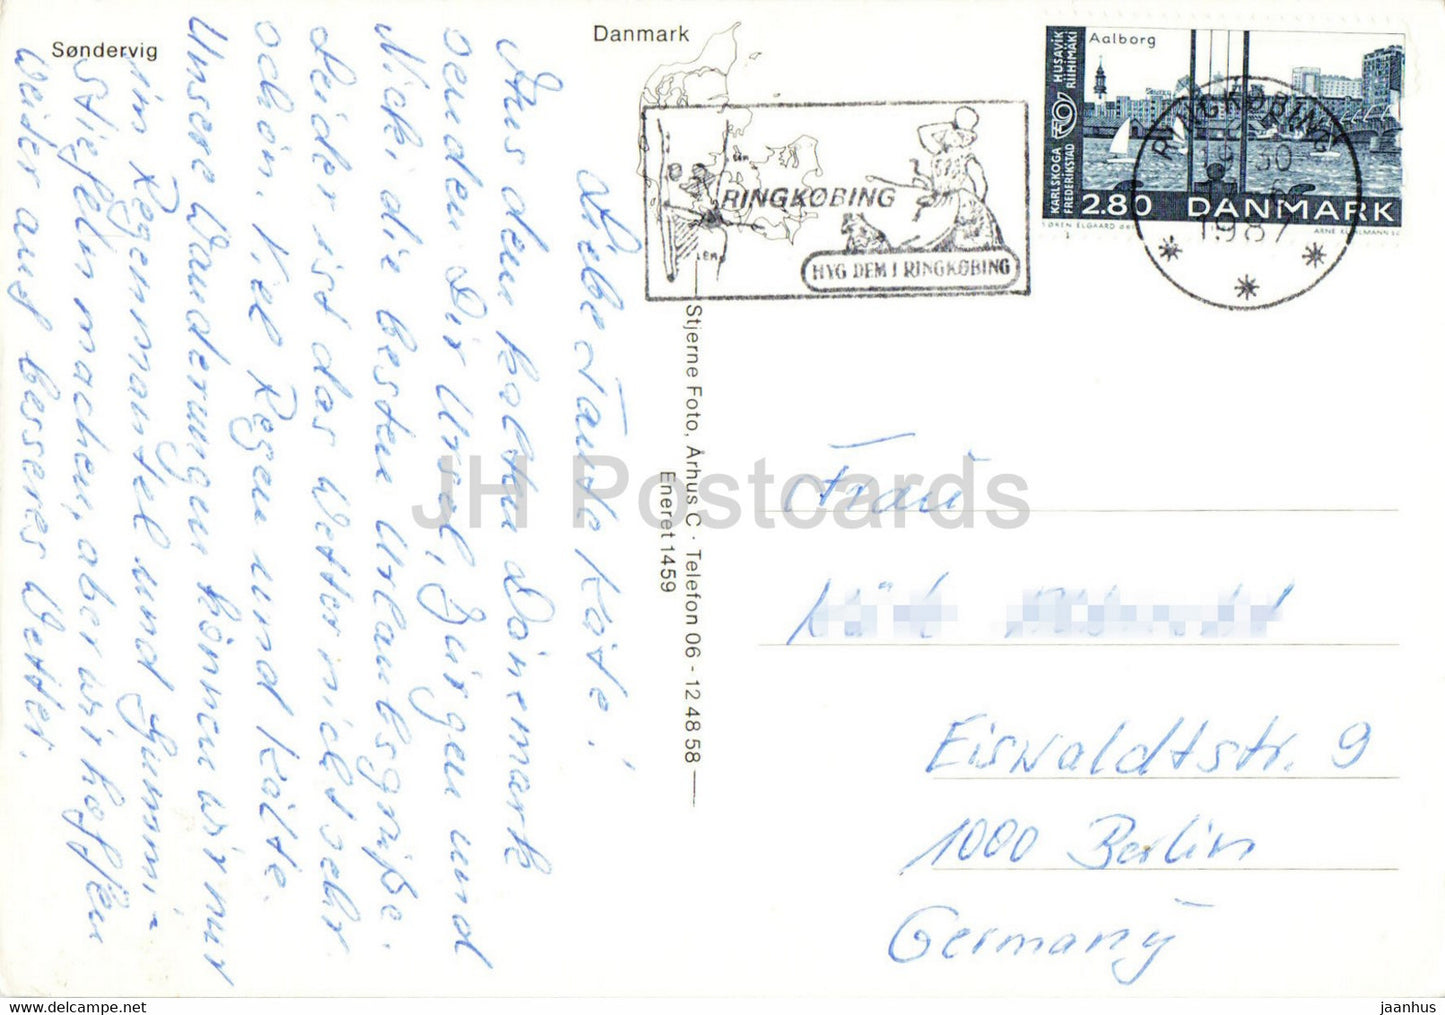 Søndervig
Danmark
Liebe Tante Käte!
Aus dem kalten Dänemark
senden Dir Ursel, Jürgen und
Nicki die besten Urlaubsgrüße.
Leider ist das Wetter nicht sehr
schön. Viel Regen und Kälte.
Unsere Wanderungen können wir nur
in Regenmantel und Gummi-
stiefeln machen, aber wir hoffen
weiter auf besseres Wetter.
Stjerne Foto, Århus C · Telefon 06 - 12 48 58
Eneret 1459
RINGKØBING
HYG DEM I RINGKØBING
Aalborg
HUSAVIK
RIIHIMÄKI
KARLSKOGA
FREDERIKSTAD
2.80 DANMARK
RINGKØBING
1987
Frau
Eiswaldtstr. 9
1000 Berlin
Germany
JH Postcards
https://www.delcampe.net
jaanhus